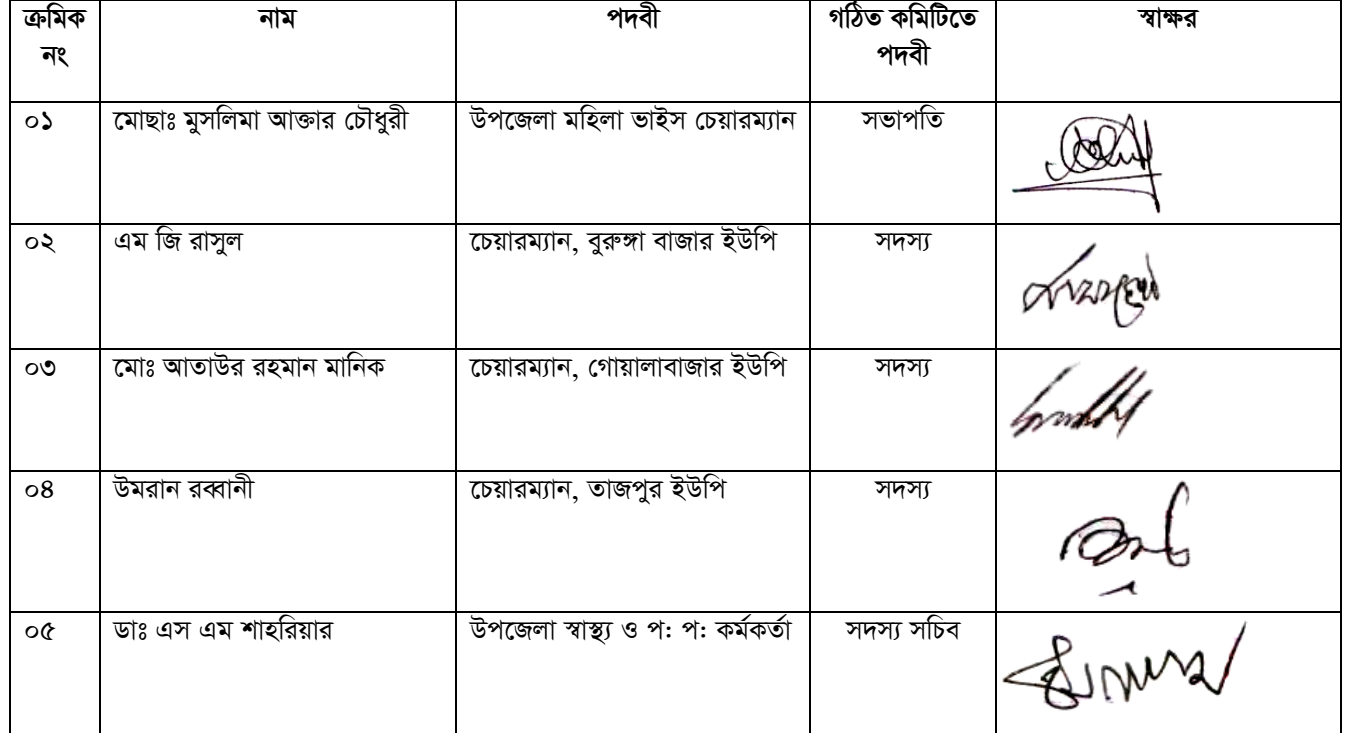 ক্রমিক নং নাম পদবী গঠিত কমিটিতে পদবী স্বাক্ষর
০১ মোছাঃ মুসলিমা আক্তার চৌধুরী উপজেলা মহিলা ভাইস চেয়ারম্যান সভাপতি
০২ এম জি রাসুল চেয়ারম্যান, বুরুঙ্গা বাজার ইউপি সদস্য
০৩ মোঃ আতাউর রহমান মানিক চেয়ারম্যান, গোয়ালাবাজার ইউপি সদস্য
০৪ উমরান রব্বানী চেয়ারম্যান, তাজপুর ইউপি সদস্য
০৫ ডাঃ এস এম শাহরিয়ার উপজেলা স্বাস্থ্য ও প: প: কর্মকর্তা সদস্য সচিব